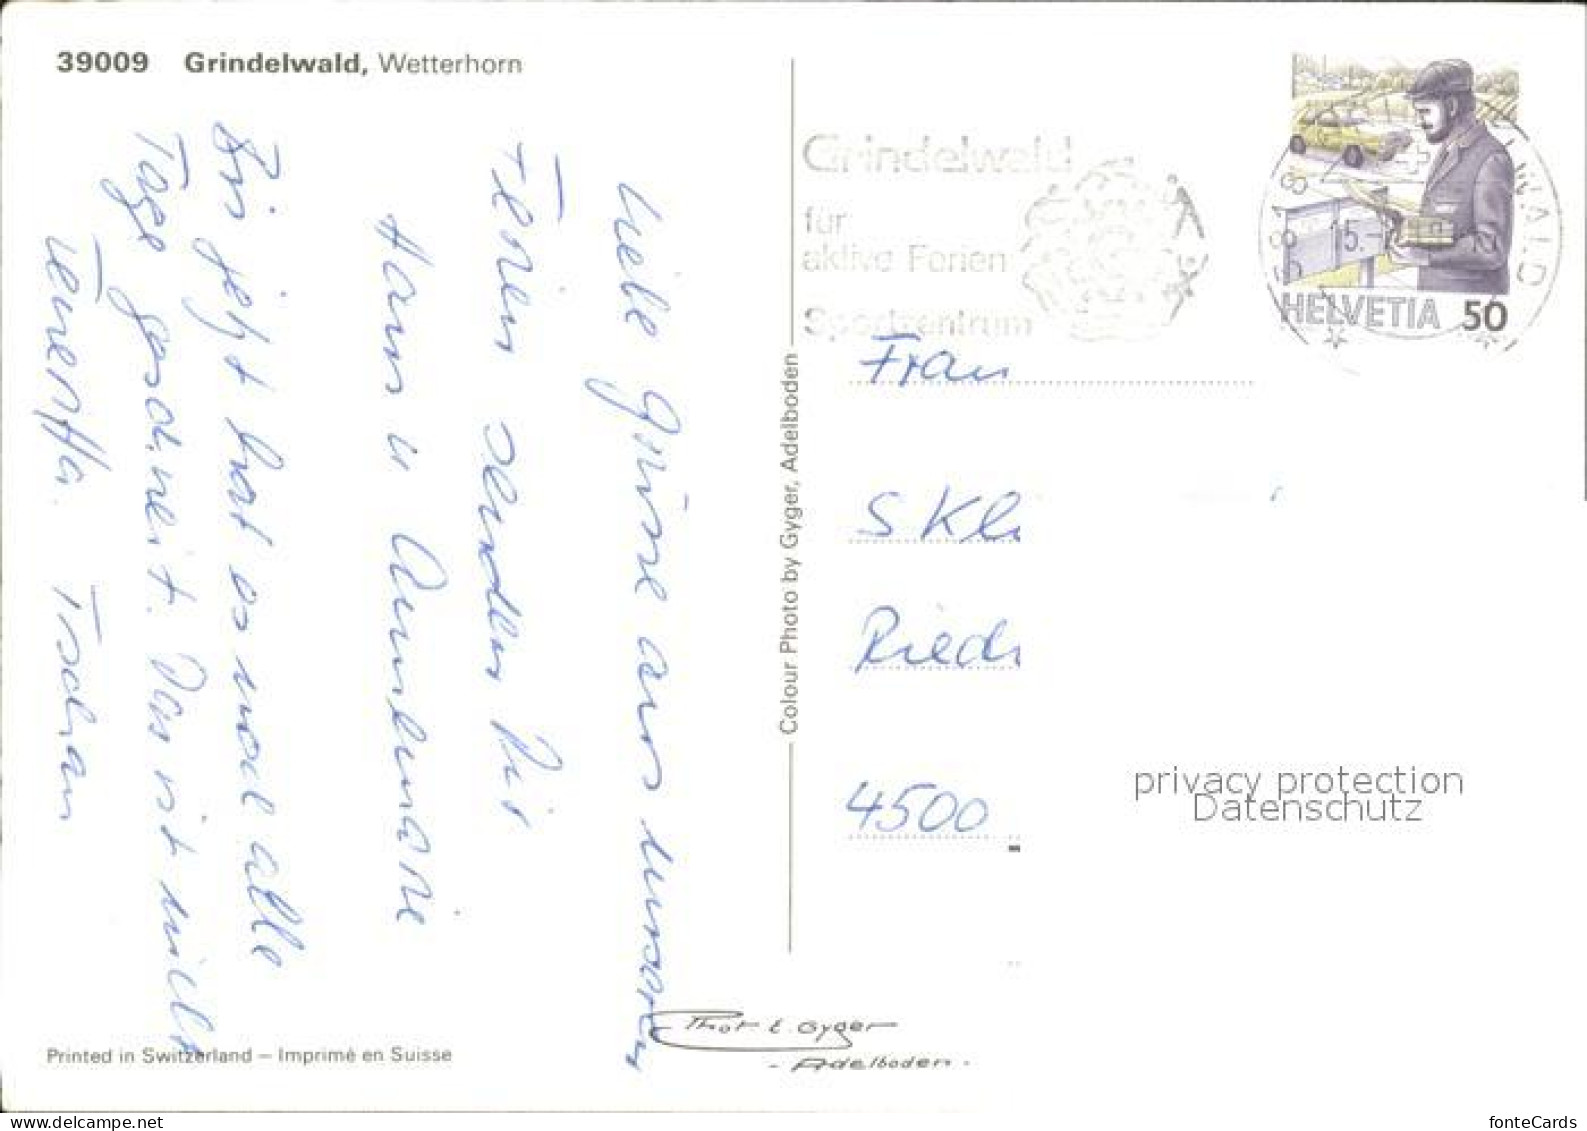 39009 Grindelwald, Wetterhorn
Liebe Grüsse aus unseren
Ferien senden Dir
Hans u Annemarie
Bis jetzt hat es noch alle
Tage geschneit. Das ist nicht
Teneriffa. Tscham
Printed in Switzerland – Imprimé en Suisse
Colour Photo by Gyger, Adelboden
Phot E. Gyger
- Adelboden -
Grindelwald
für
aktive Ferien
Sportzentrum
3818 GRINDELWALD
15.-
HELVETIA 50
Frau
S Kl
Ried
4500
privacy protection
Datenschutz
fonteCards